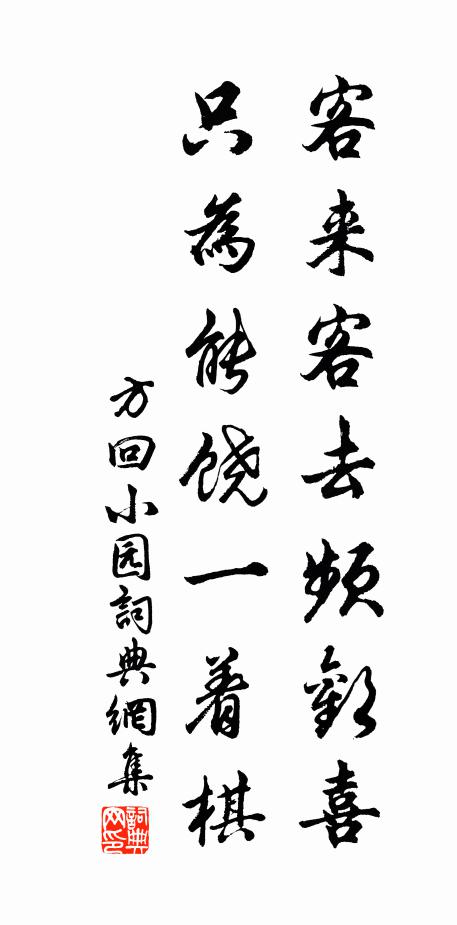 客来客去频歡喜
只為能饶一着棋
方回小园詞典網集
詞典网印